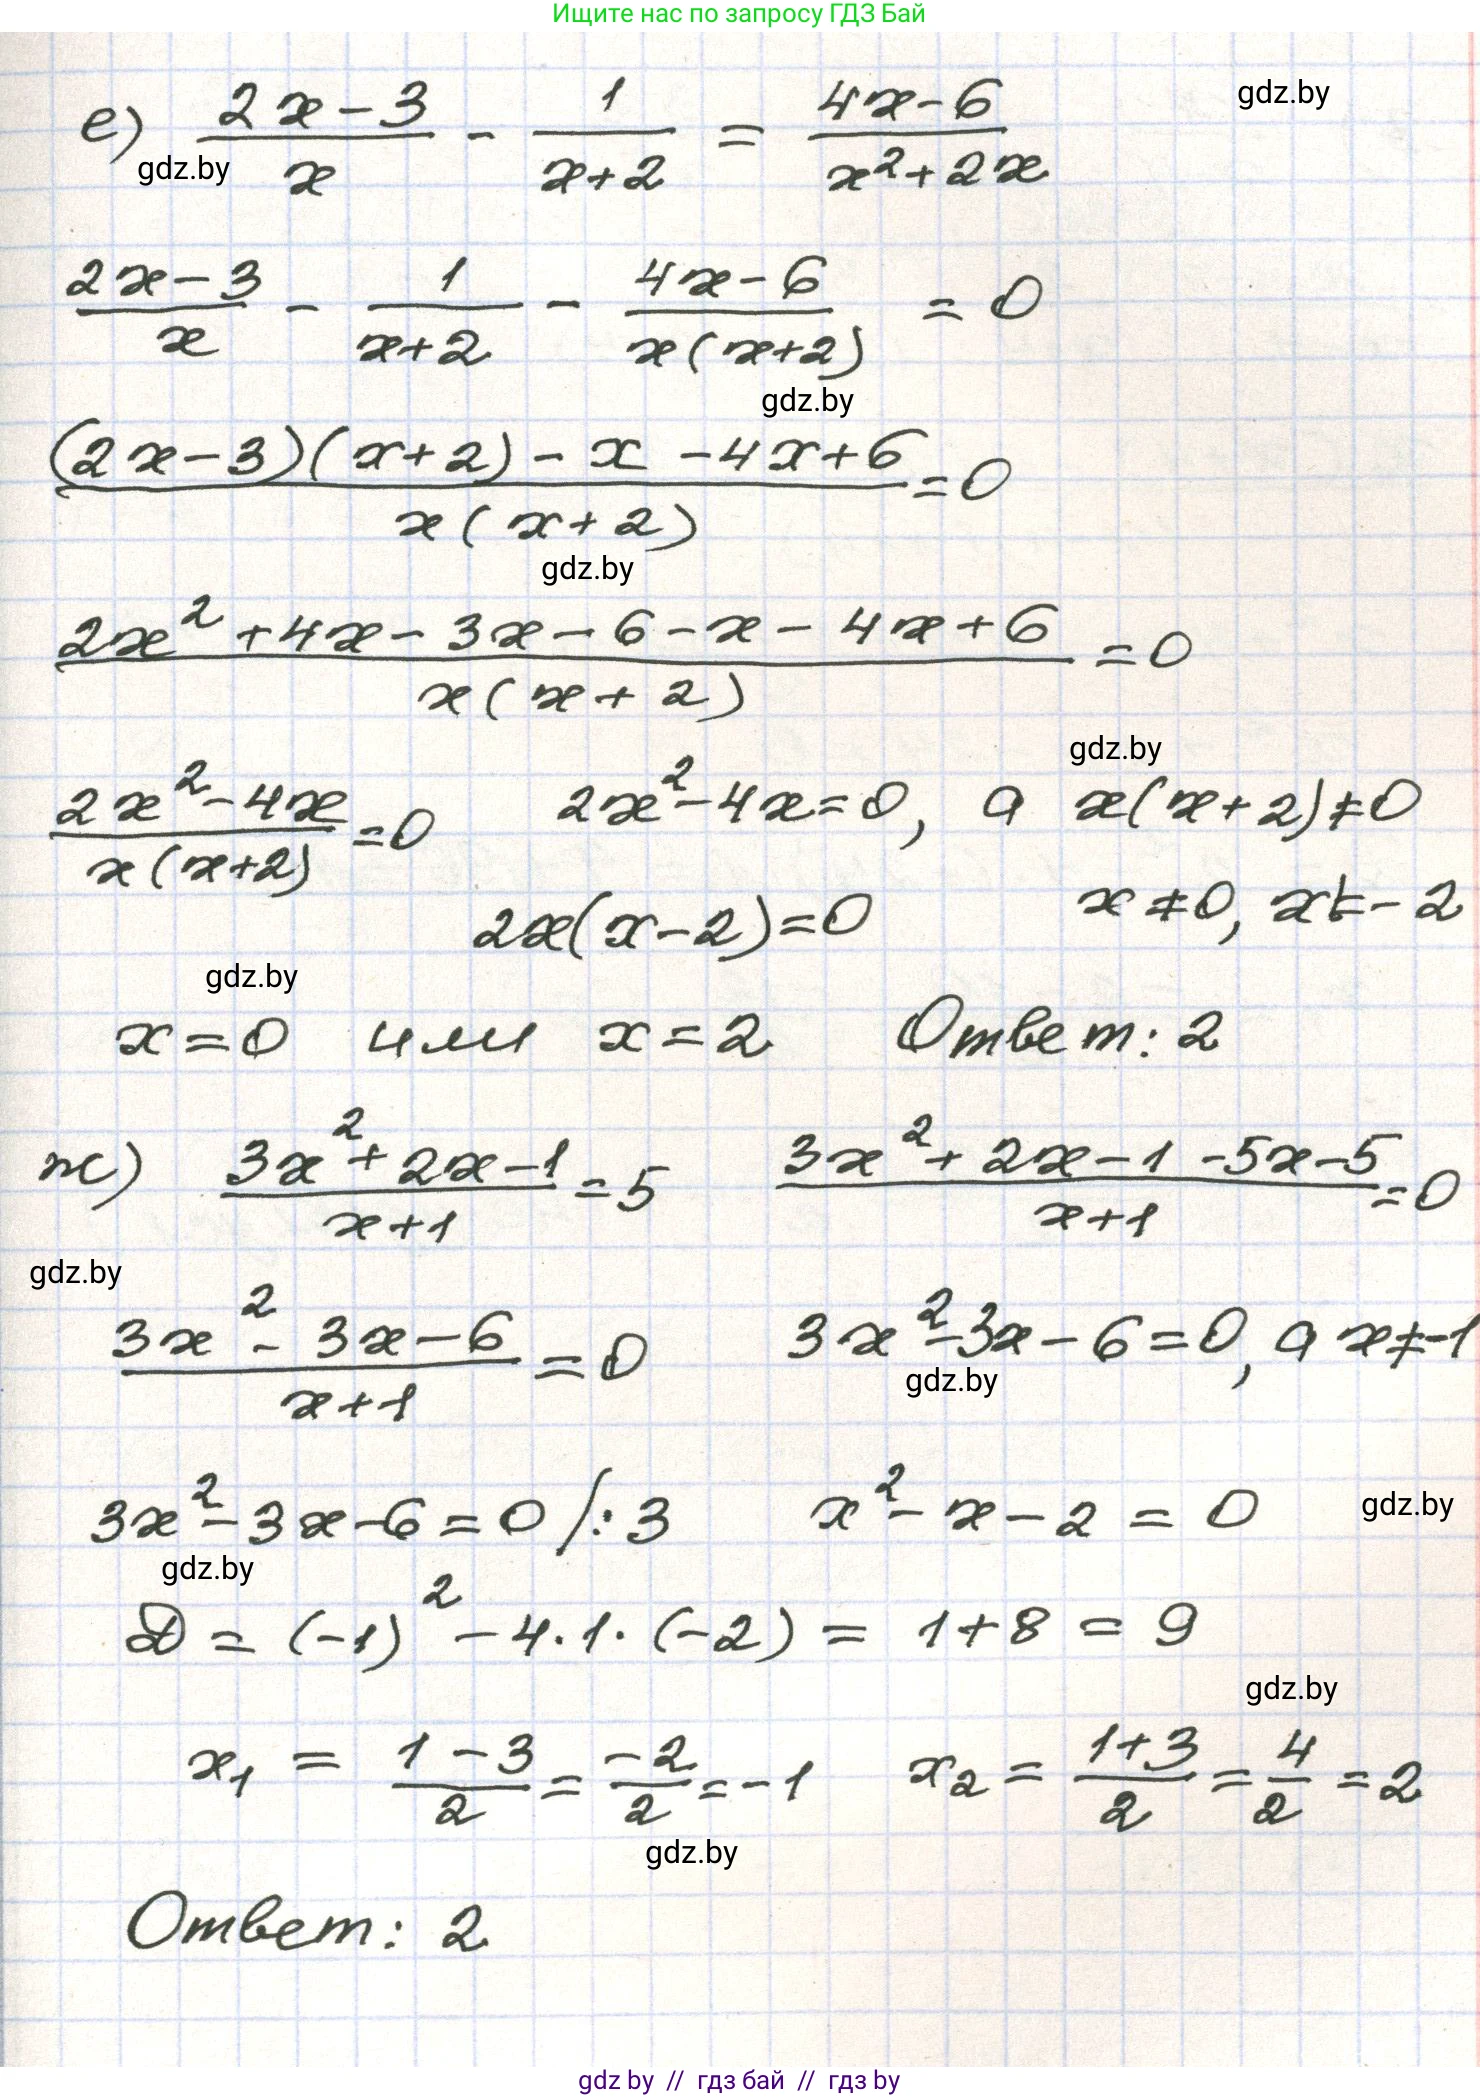 Ищите нас по запросу ГДЗ Бай
gdz.by
е) (2x-3)/x - 1/(x+2) = (4x-6)/(x²+2x)
gdz.by
(2x-3)/x - 1/(x+2) - (4x-6)/(x(x+2)) = 0
gdz.by
((2x-3)(x+2)-x-4x+6)/(x(x+2)) = 0
gdz.by
(2x²+4x-3x-6-x-4x+6)/(x(x+2)) = 0
gdz.by
(2x²-4x)/(x(x+2)) = 0 2x²-4x=0, а x(x+2)≠0
2x(x-2)=0 x≠0, x≠-2
gdz.by
x=0 или x=2 Ответ: 2
ж) (3x²+2x-1)/(x+1) = 5 (3x²+2x-1-5x-5)/(x+1) = 0
gdz.by
(3x²-3x-6)/(x+1) = 0 3x²-3x-6=0, а x≠-1
gdz.by
3x²-3x-6=0 /:3 x²-x-2=0
gdz.by
gdz.by
D = (-1)²-4·1·(-2) = 1+8 = 9
gdz.by
x₁ = (1-3)/2 = -2/2 = -1 x₂ = (1+3)/2 = 4/2 = 2
gdz.by
Ответ: 2
gdz by // гдз бай // гдз by